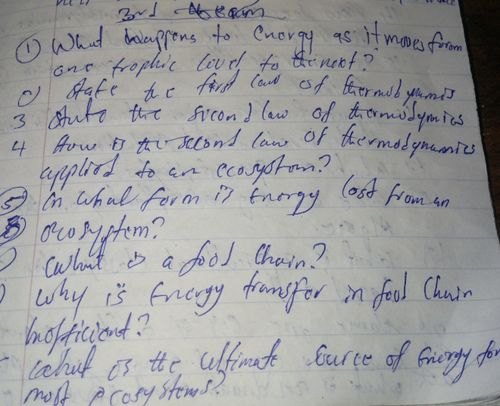 3rd
① What happens to Energy as it moves from
one trophic level to the next?
State the first law of thermodynamis
3 State the second law of thermodymics
4 How is the second law of thermodynamics
applied to an ecosystem?
⑤ in what form is Energy lost from an
ecosyptem?
What is a food Chain?
Why is Energy transfer in food Chain
inofficient?
What is the ultimate source of Energy for
most ecosystems?